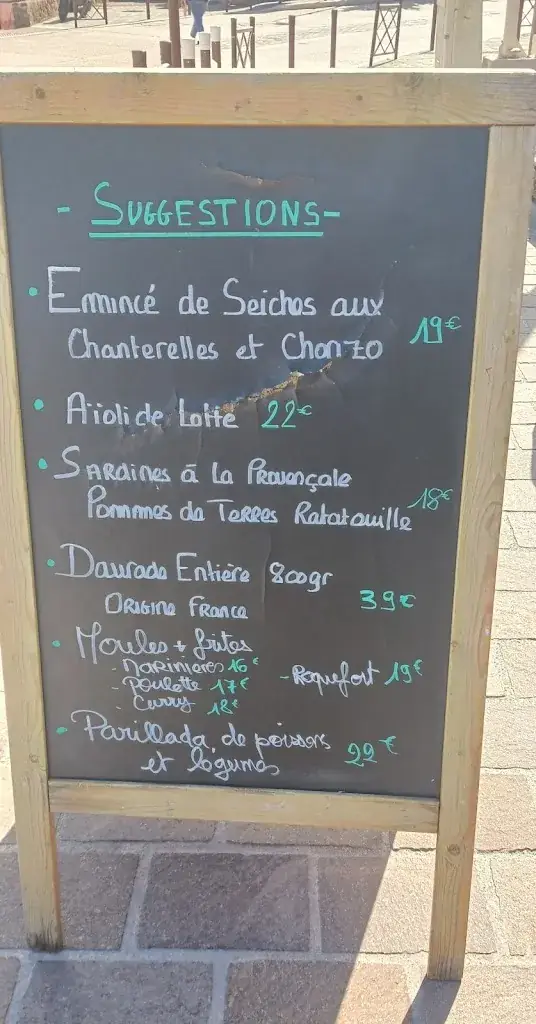 - SUGGESTIONS -
• Emincé de Seiches aux
Chanterelles et Chorizo 19€
• Aïoli de Lotte 22€
• Sardines à la Provençale
Pommes de Terres Ratatouille 18€
• Daurade Entière 800gr
Origine France 39€
• Moules + frites
- Marinières 16€
- Poulette 17€
- Curry 18€
- Roquefort 19€
• Parillada de poissons
et légumes 22€